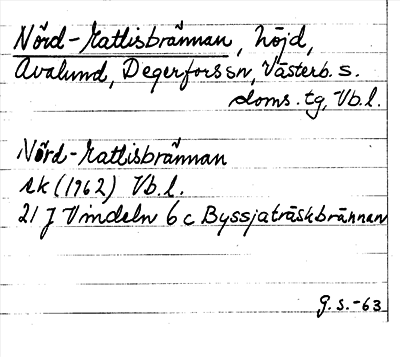 Nörd-Kattisbrännan, höjd,
Avalund, Degerfors sn, Västerb. s.
doms. tg, Vb. l.
Nörd-Kattisbrännan
ek (1962) Vb. l.
21 J Vindeln 6 c Byssjaträskbrännan
G. S. -63